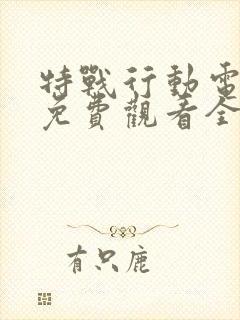 特戰行動電
免費觀看全
有只鹿